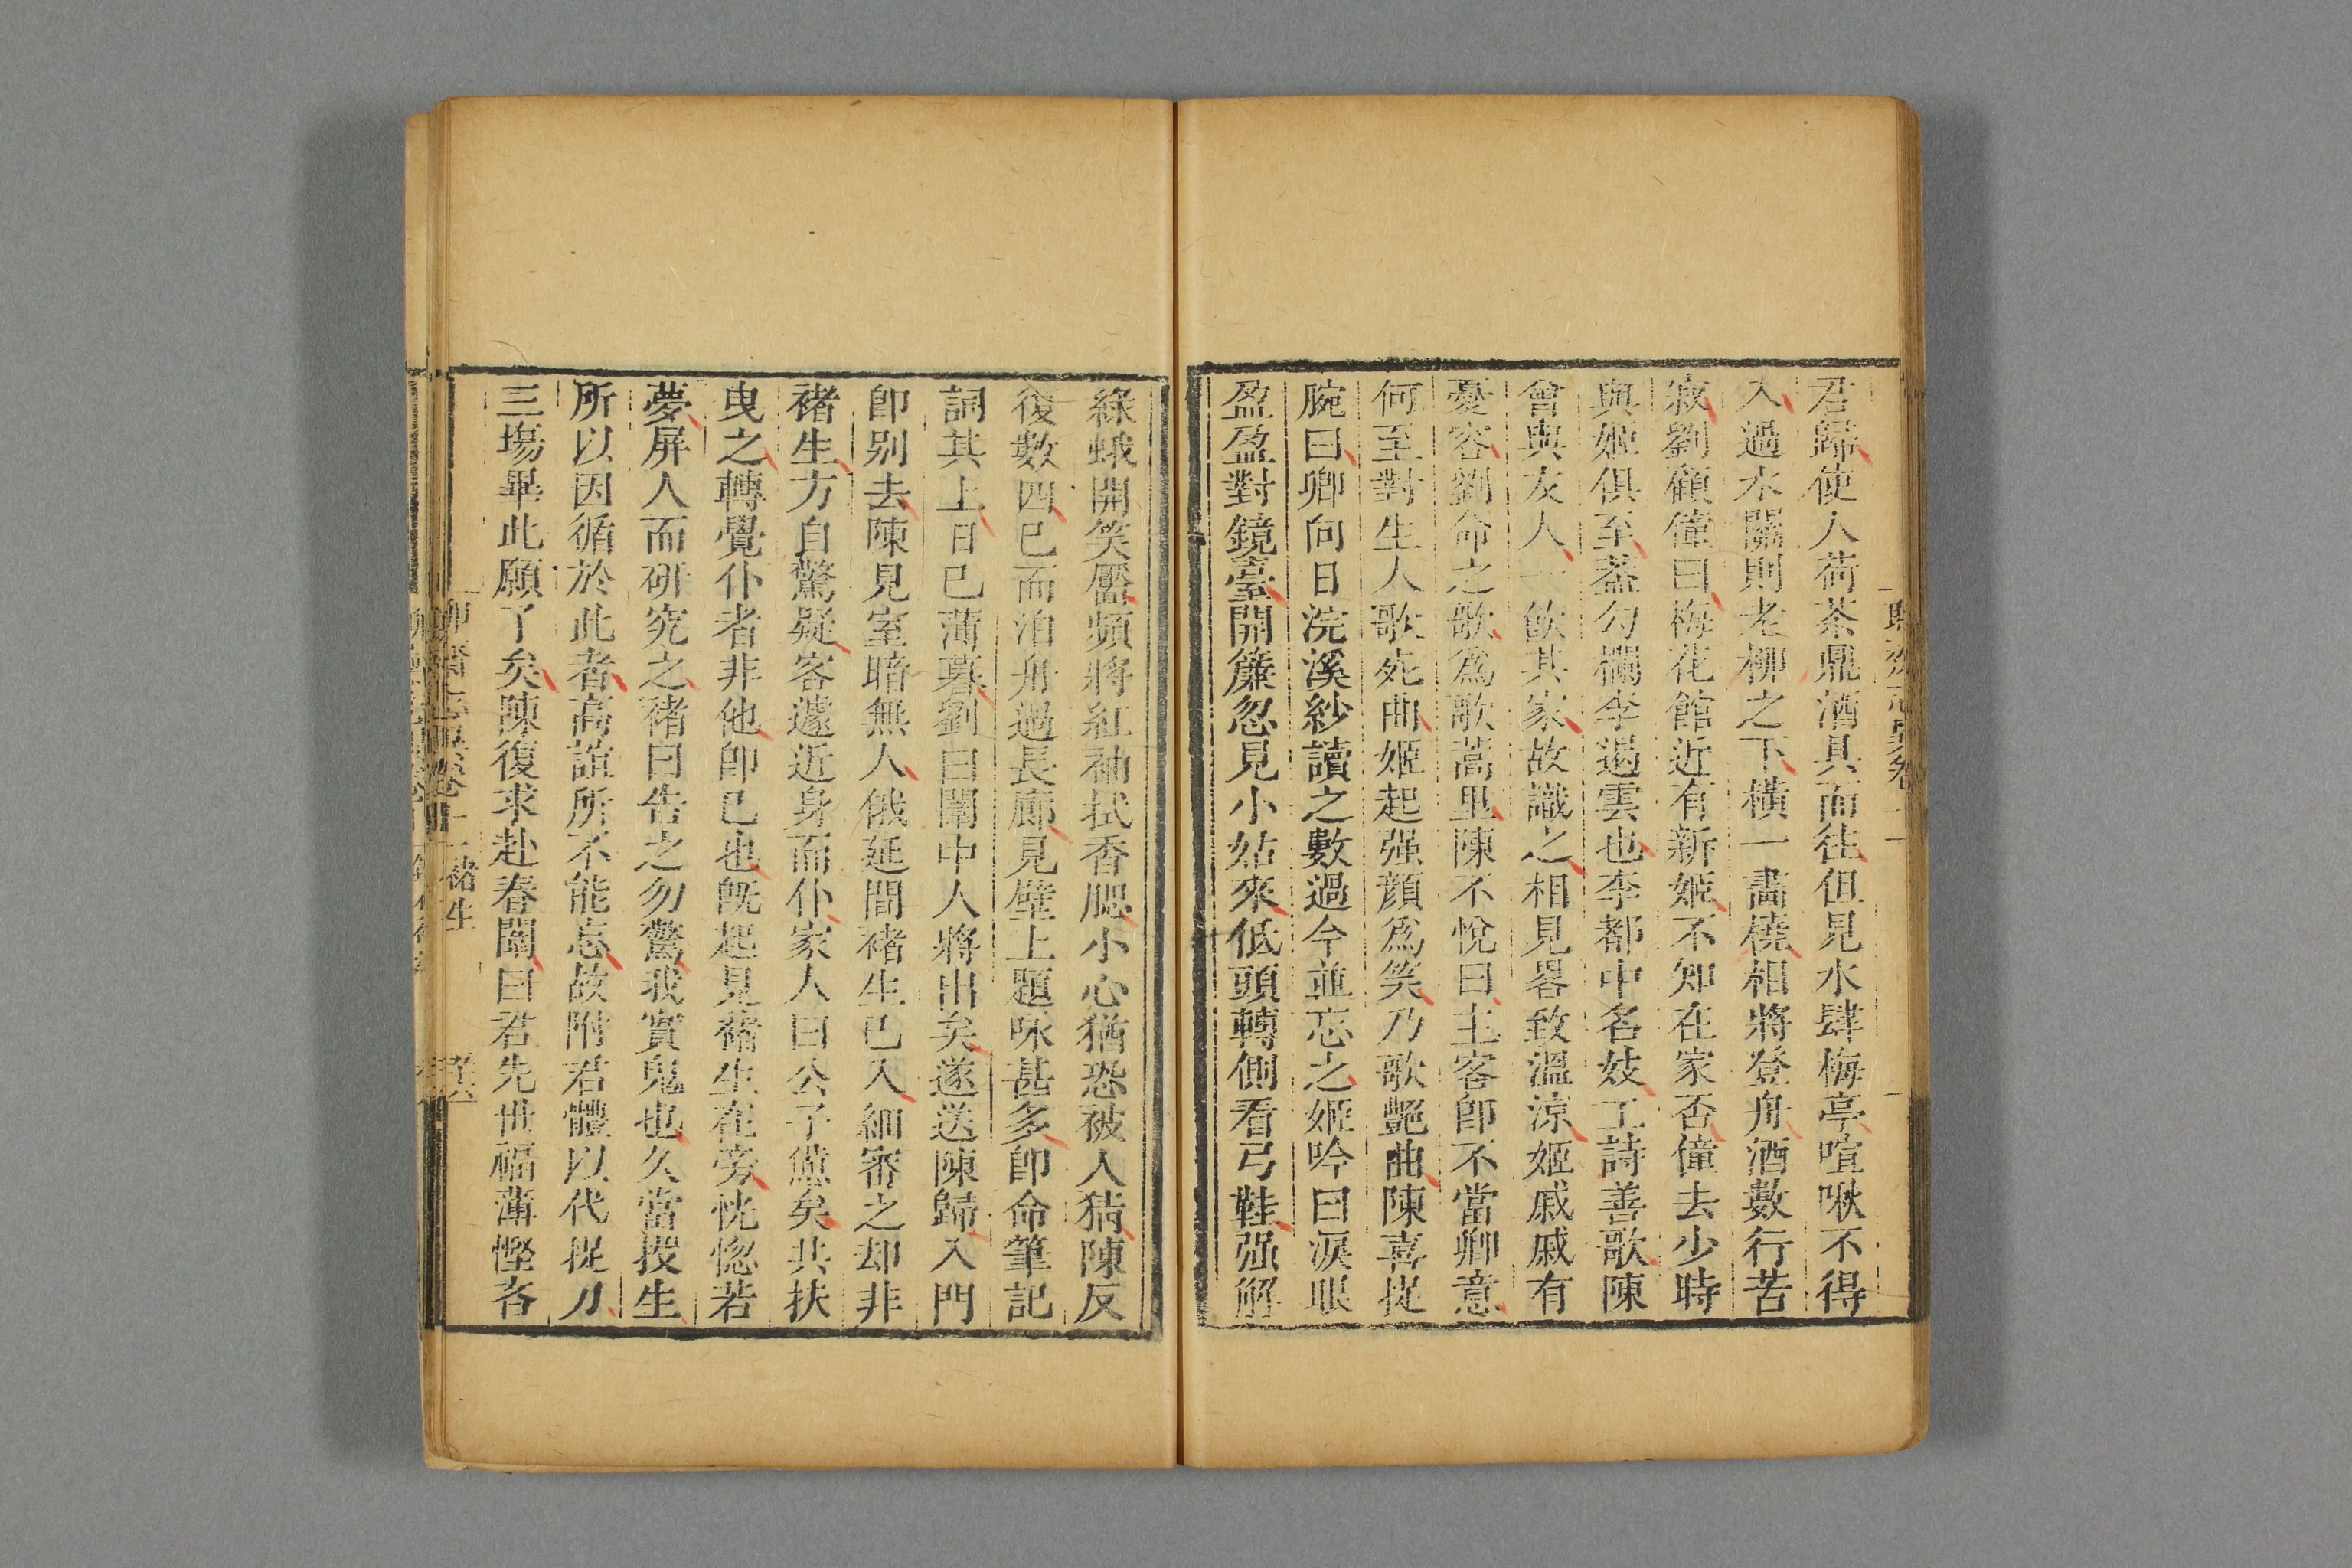 君歸使人荷茶鼎酒具而往但見水肆梅亭喧啾不得
入過水關則老柳之下橫一畵橈相將登舟酒數行苦
寂劉顧僮曰梅花館近有新姬不知在家否僮去少時
與姬俱至葢勾欄李遏雲也李都中名妓工詩善歌陳
曾與友人一飲其家故識之相見畧致溫涼姬戚戚有
憂容劉命之歌爲歌蒿里陳不悅曰主客卽不當卿意
何至對生人歌死曲姬起强顏爲笑乃歌艷曲陳喜捉
腕曰卿向日浣溪紗讀之數過今並忘之姬吟曰淚眼
盈盈對鏡臺開簾忽見小姑來低頭轉側看弓鞋强解
綠蛾開笑靨頻將紅袖拭香腮小心猶恐被人猜陳反
復數四已而泊舟過長廊見壁上題咏甚多卽命筆記
詞其上日已薄暮劉曰闈中人將出矣遂送陳歸入門
卽别去陳見室暗無人俄延間褚生已入細審之却非
褚生方自驚疑客遽近身而仆家人曰公子憊矣共扶
曳之轉覺仆者非他卽己也旣起見褚生在旁恍惚若
夢屏人而研究之褚曰告之勿驚我實鬼也久當投生
所以因循於此者高誼所不能忘故附君體以代捉刀
三塲畢此願了矣陳復求赴春闈曰君先世福薄慳吝
褚生